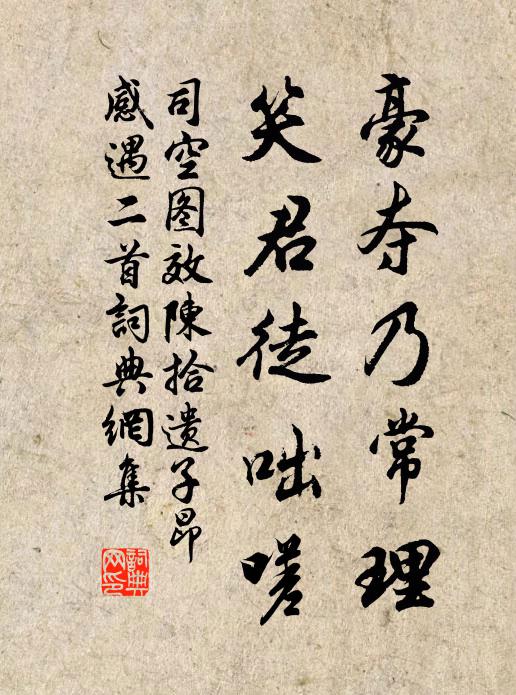 豪夺乃常理
笑君徒咄嗟
司空图效陳拾遗子昂
感遇二首詞典網集
詞典网印